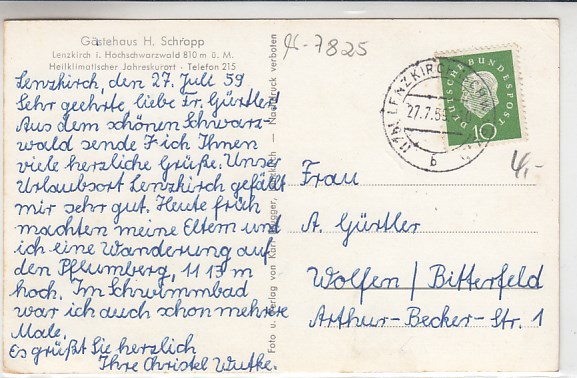 Gästehaus H. Schropp
Lenzkirch i. Hochschwarzwald 810 m ü. M.
Heilklimatischer Jahreskurort - Telefon 215
Lenzkirch, den 27. Juli 59
Sehr geehrte liebe Fr. Gürtler!
Aus dem schönen Schwarz-
wald sende ich Ihnen
viele herzliche Grüße. Unser
Urlaubsort Lenzkirch gefällt
mir sehr gut. Heute früh
machten meine Eltern und
ich eine Wanderung auf
den Pflumberg, 1113 m
hoch. Im Schwimmbad
war ich auch schon mehrere
Male.
Es grüßt Sie herzlich
Ihre Christel Wutke.
Foto u. Verlag von Karl Brugger, Lenzkirch — Nachdruck verboten
-7825
DEUTSCHE BUNDESPOST
10
LENZKIRCH
27.7.59
b
4,-
Frau
A. Gürtler
Wolfen / Bitterfeld
Arthur-Becker-Str. 1